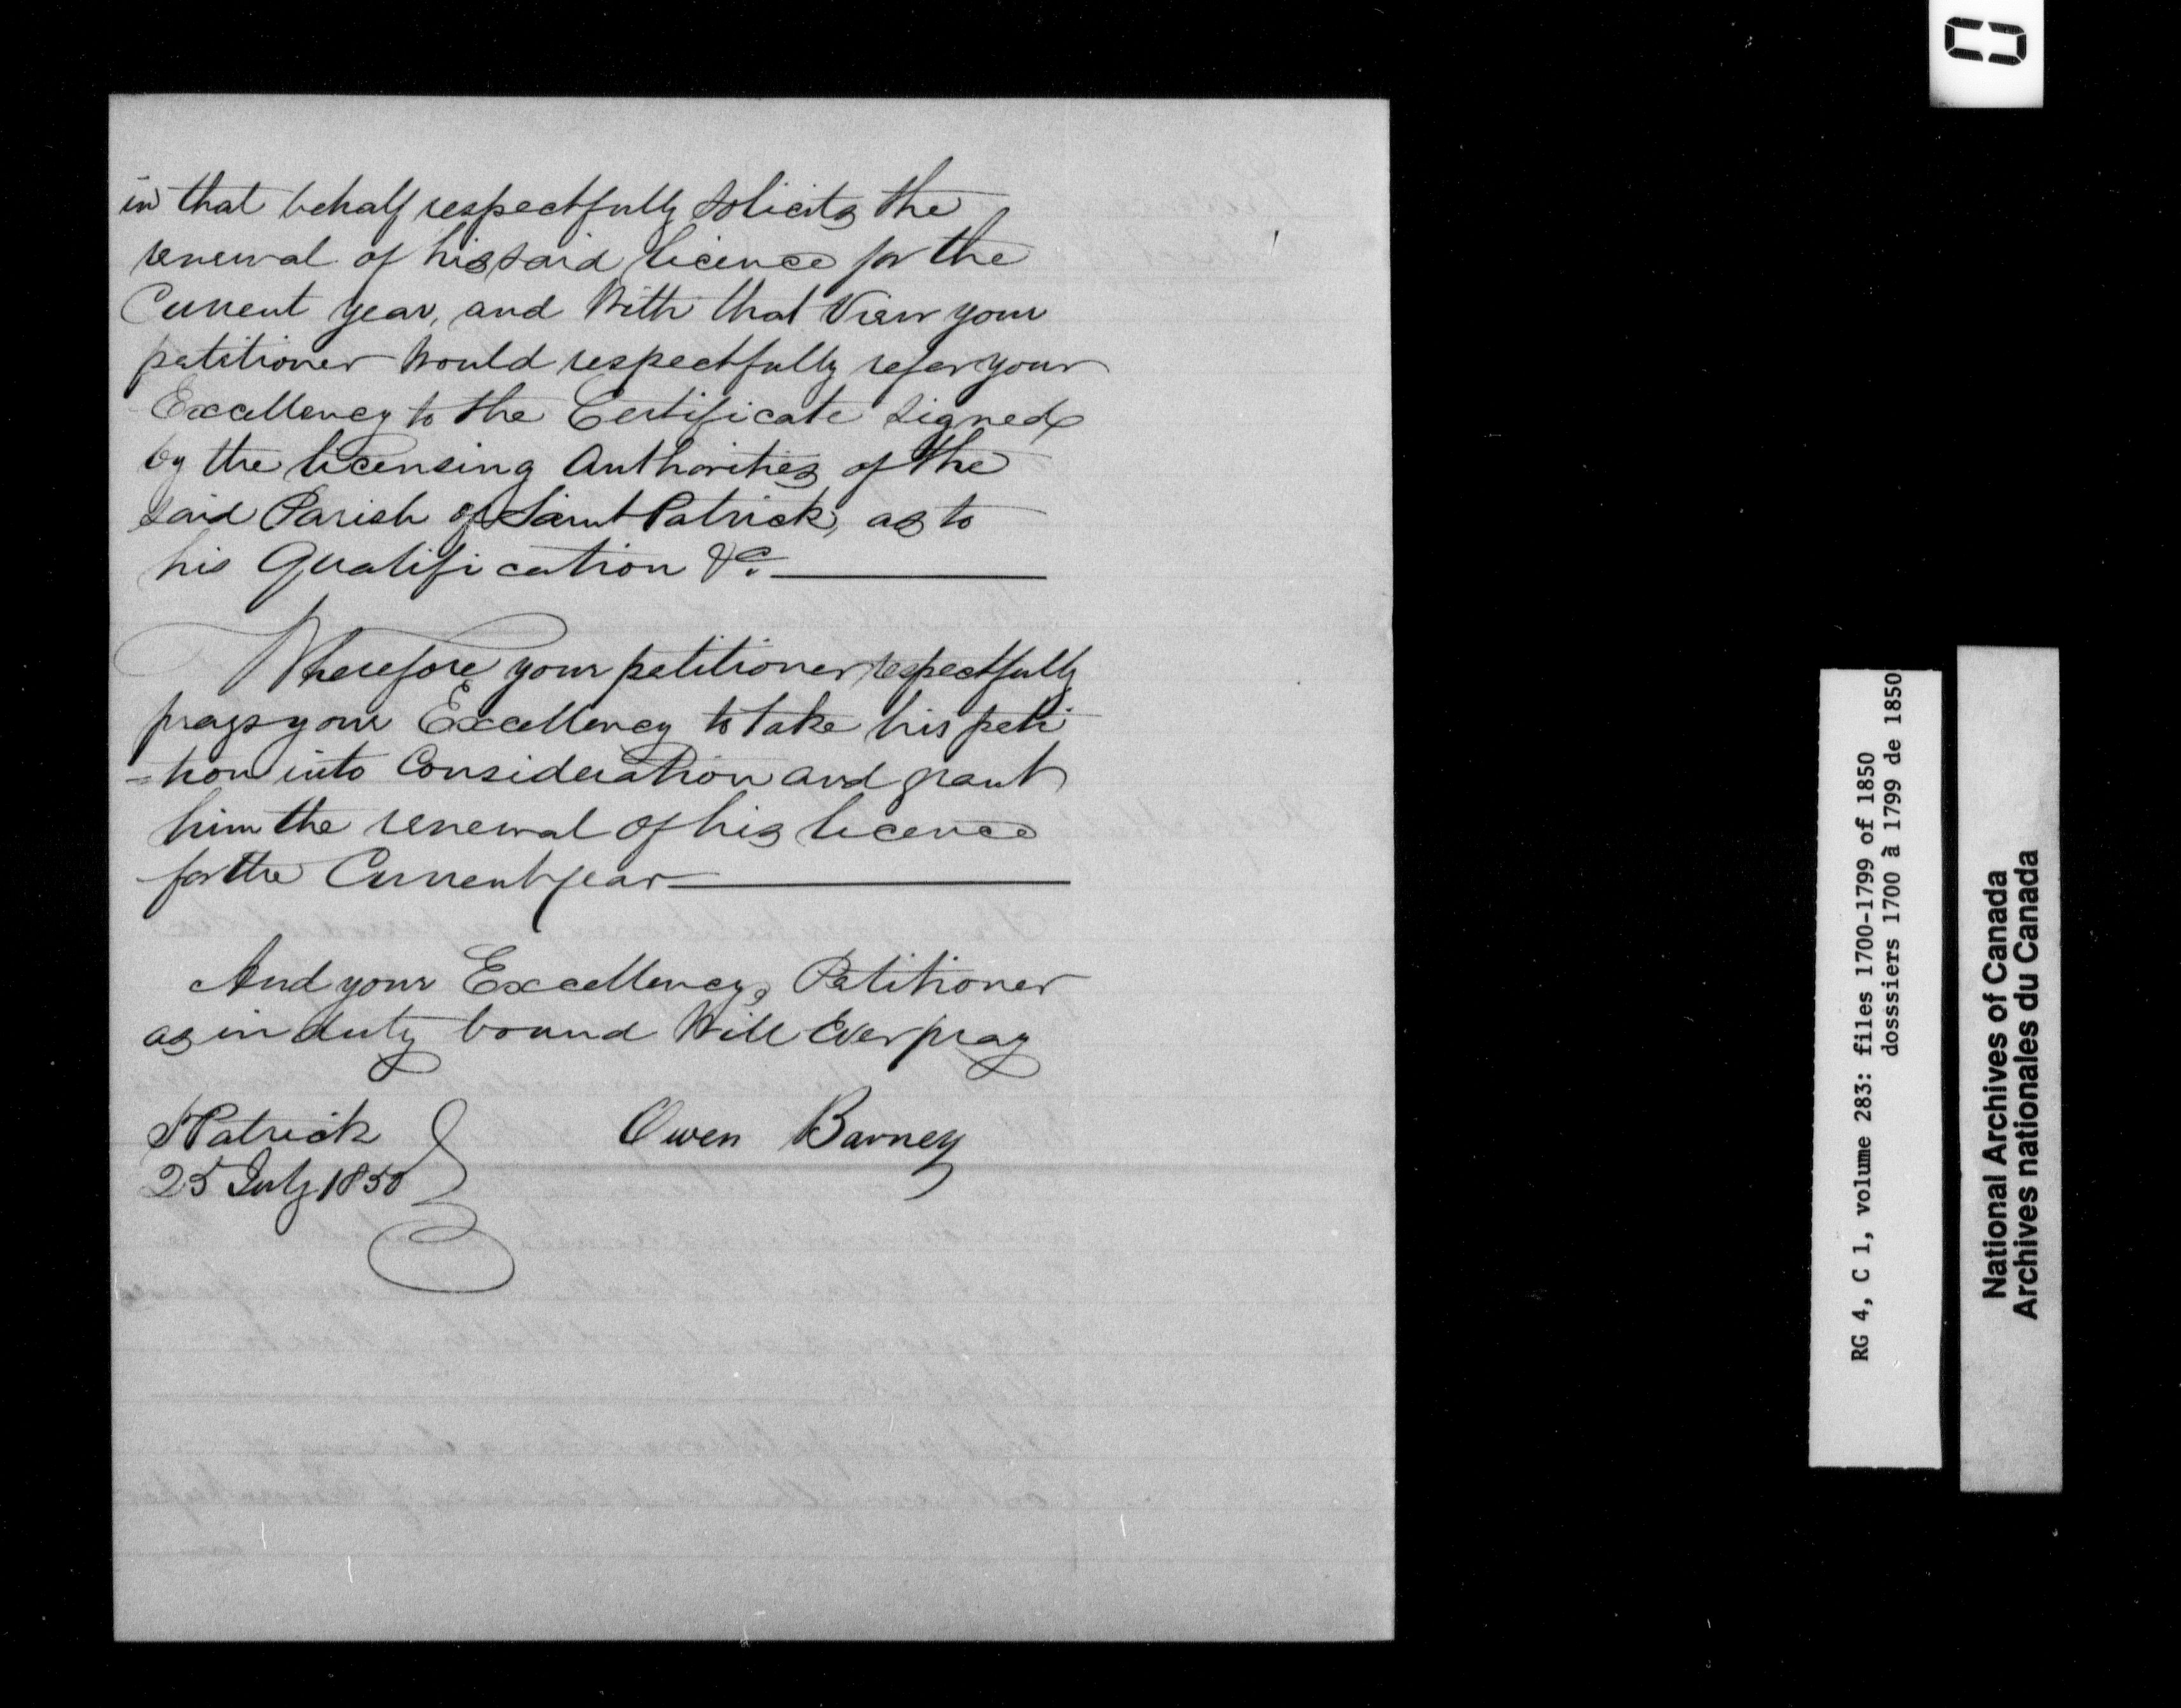 in that behalf respectfully solicits the
renewal of his said licence for the
Current year, and With that View your
petitioner Would respectfully refer your
Excellency to the Certificate signed
by the licensing Authorities of the
said Parish of Saint Patrick, as to
his Qualification &c.
Wherefore your petitioner respectfully
prays your Excellency to take his peti
=tion into Consideration and grant
him the renewal of his licence
for the Current year
And your Excellency's Petitioner
as in duty bound Will Ever pray
St Patrick
25 July 1850
Owen Barney
RG 4, C 1, volume 283: files 1700-1799 of 1850
dosssiers 1700 à 1799 de 1850
National Archives of Canada
Archives nationales du Canada